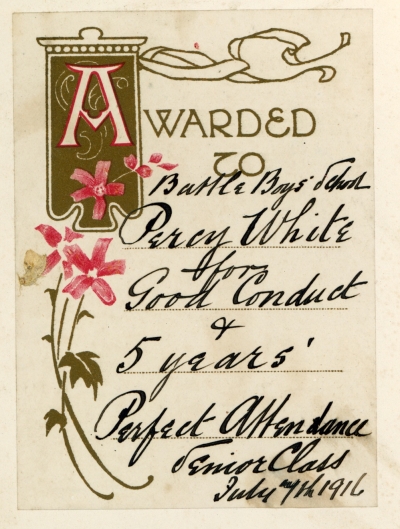 AWARDED
TO
Battle Boys' School
Percy White
for
Good Conduct
&
5 years'
Perfect Attendance
Senior Class
July 7th 1916